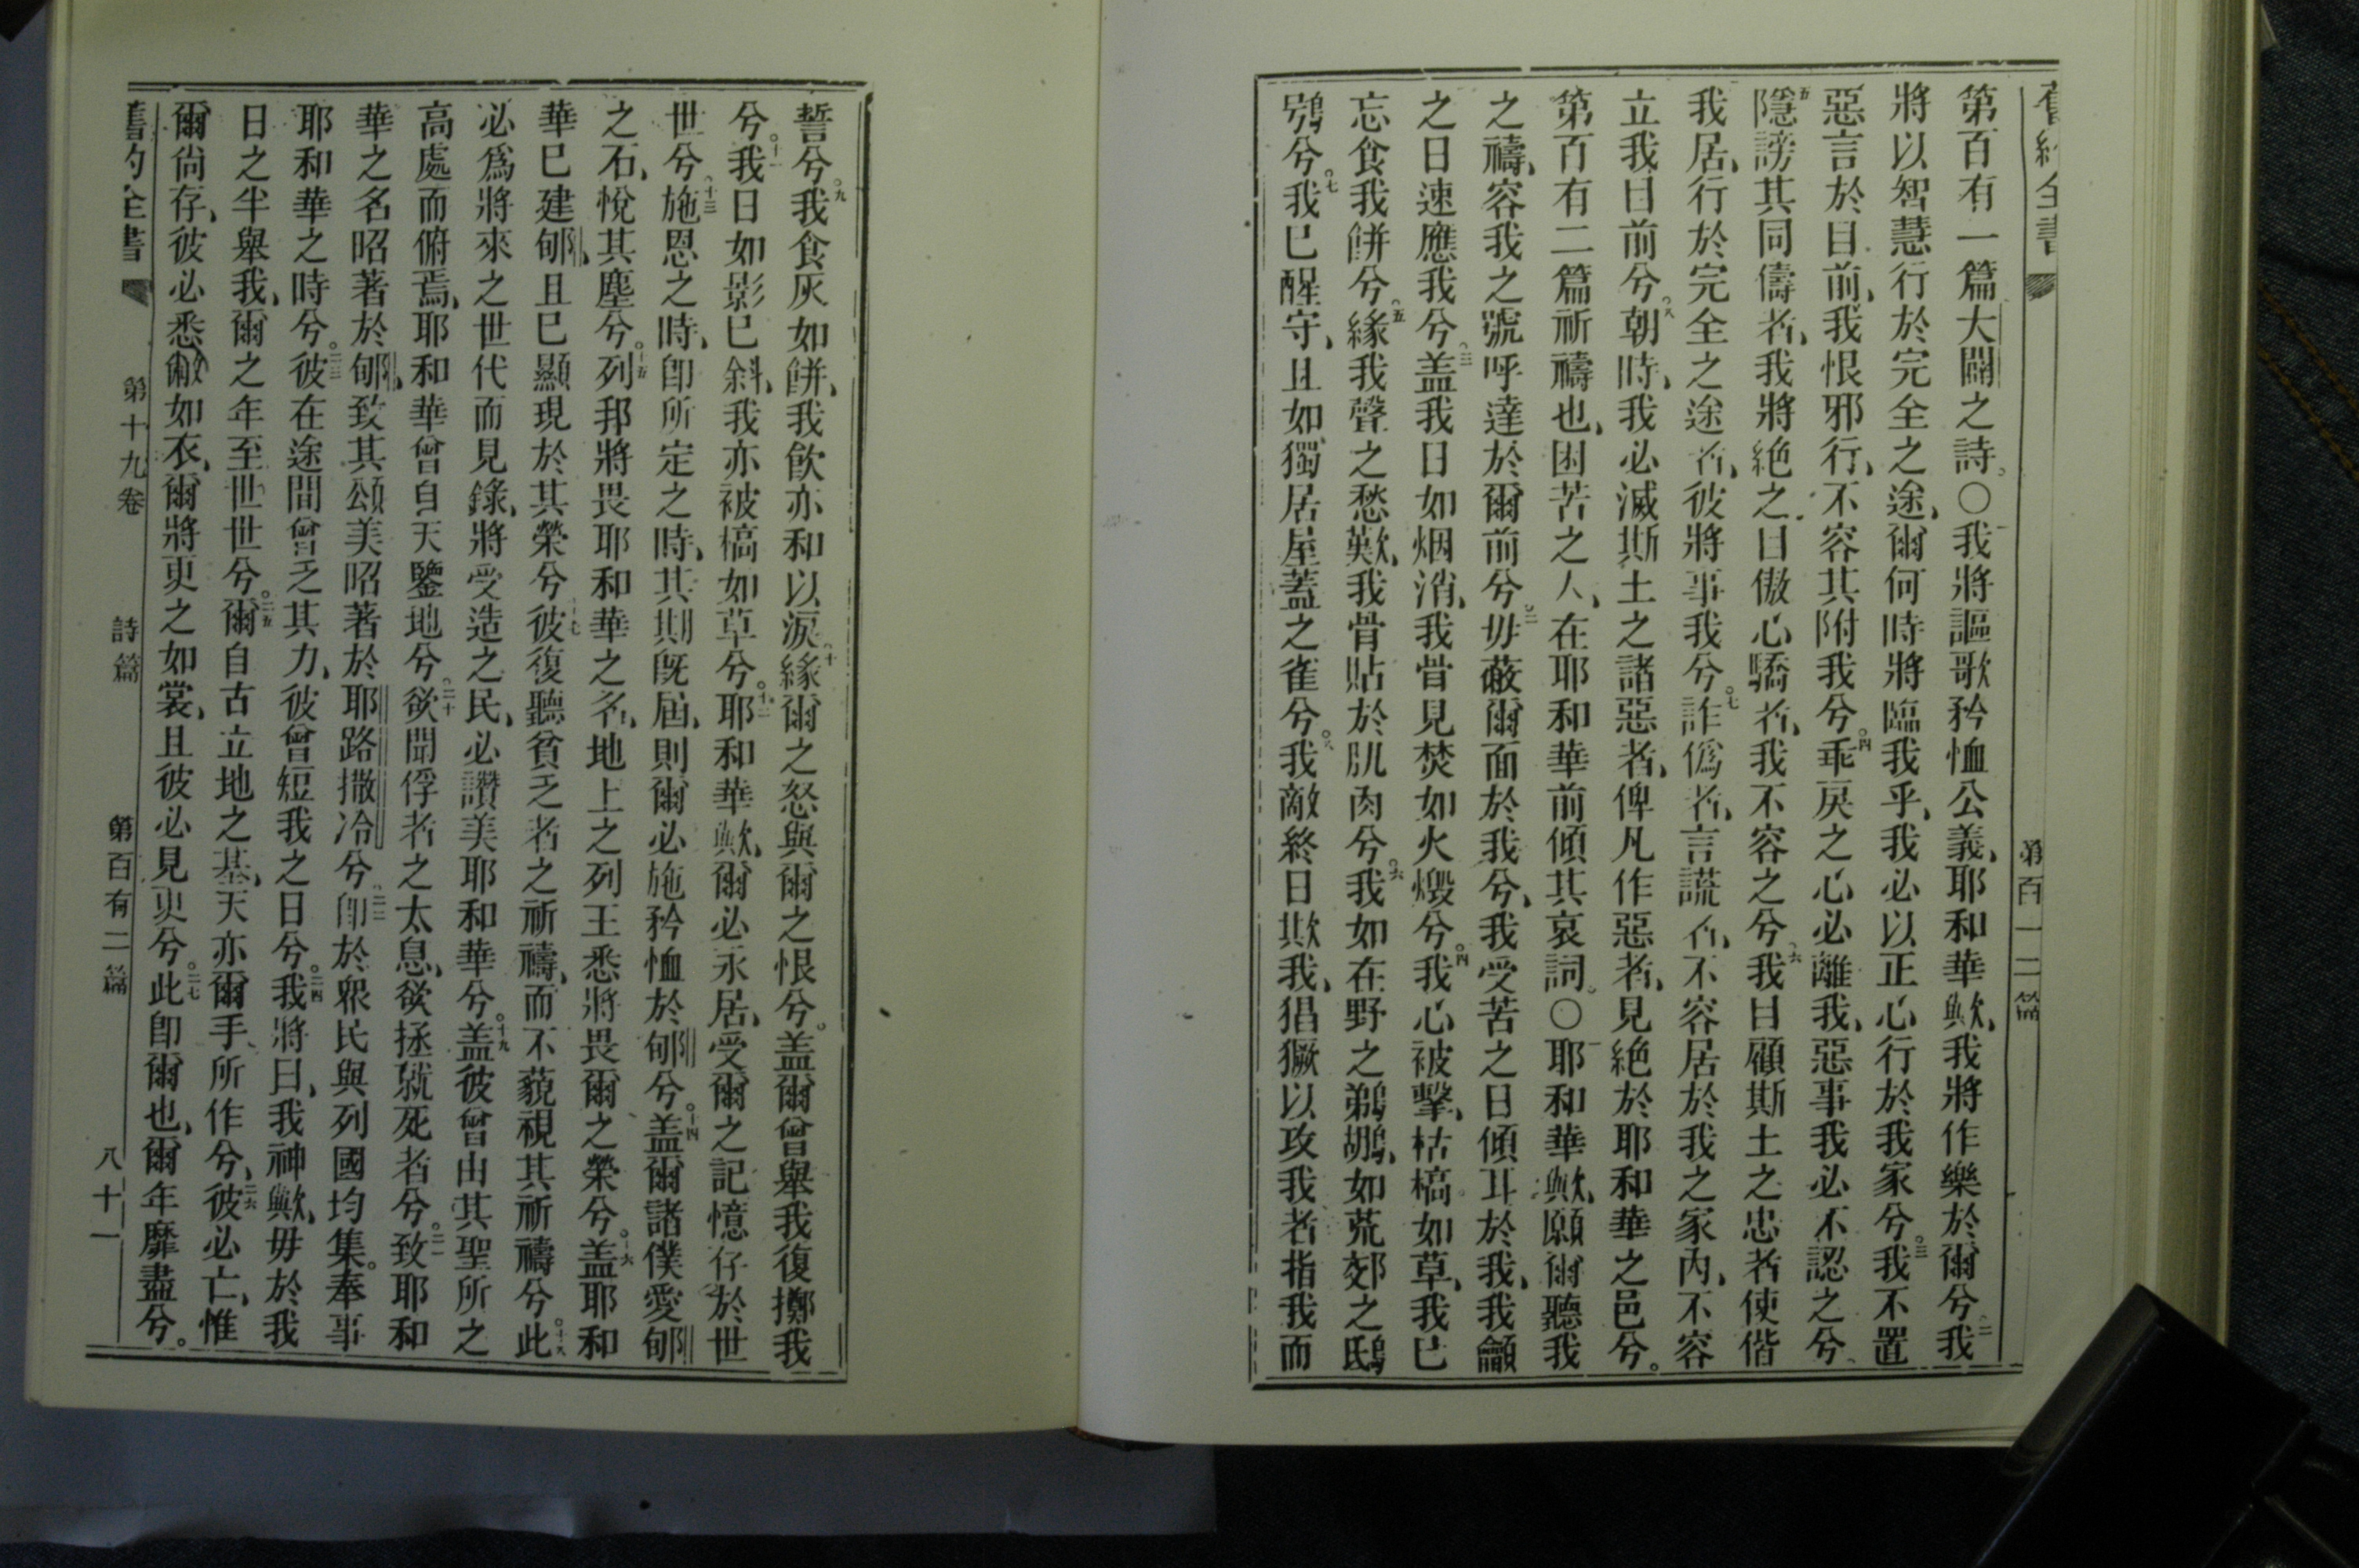 舊約全書 第百一二篇
第百有一篇大闢之詩。〇一我將謳歌矜恤公義、耶和華歟、我將作樂於爾兮。二我
將以智慧行於完全之途、爾何時將臨我乎、我必以正心行於我家兮。三我不置
惡言於目前、我恨邪行、不容其附我兮。四乖戾之心必離我、惡事我必不認之兮、
五隱謗其同儔者、我將絕之、目傲心驕者、我不容之兮、六我目顧斯土之忠者使偕
我居、行於完全之途者、彼將事我兮。七詐僞者、言謊者、不容居於我之家內、不容
立我目前兮。八朝時、我必滅斯土之諸惡者、俾凡作惡者、見絕於耶和華之邑兮。
第百有二篇祈禱也、困苦之人、在耶和華前傾其哀詞。〇一耶和華歟、願爾聽我
之禱、容我之號呼達於爾前兮。二毋蔽爾面於我兮、我受苦之日傾耳於我、我籲
之日速應我兮。三盖我日如烟消、我骨見焚如火燬兮。四我心被擊、枯槁如草、我已
忘食我餅兮。五緣我聲之愁歎、我骨貼於肌肉兮。六我如在野之鵜鶘、如荒郊之鴟
鴞兮。七我已醒守、且如獨居屋蓋之雀兮。八我敵終日欺我、猖獗以攻我者指我而
誓兮。九我食灰如餅、我飲亦和以淚、十緣爾之怒與爾之恨兮。盖爾曾舉我復擲我
兮。十一我日如影已斜、我亦被槁如草兮。十二耶和華歟、爾必永居、受爾之記憶存於世
世兮。十三施恩之時、卽所定之時、其期旣屆、則爾必施矜恤於郇兮。十四盖爾諸僕愛郇
之石、悅其塵兮。十五列邦將畏耶和華之名、地上之列王悉將畏爾之榮兮。十六盖耶和
華已建郇、且已顯現於其榮兮十七彼復聽貧乏者之祈禱、而不藐視其祈禱兮。十八此
必爲將來之世代而見錄、將受造之民、必讚美耶和華兮。十九盖彼曾由其聖所之
高處而俯焉、耶和華曾自天鑒地兮。二十欲聞俘者之太息、欲拯就死者兮。二一致耶和
華之名昭著於郇、致其頌美昭著於耶路撒冷兮二二卽於衆民與列國均集。奉事
耶和華之時兮。二三彼在途間曾乏其力、彼曾短我之日兮。二四我將曰、我神歟、毋於我
日之半舉我、爾之年至世世兮。二五爾自古立地之基、天亦爾手所作兮、二六彼必亡、惟
爾尙存、彼必悉敝如衣、爾將更之如裳、且彼必見更兮。二七此卽爾也、爾年靡盡兮。
舊約全書 第十九卷 詩篇 第百有二篇 八十一